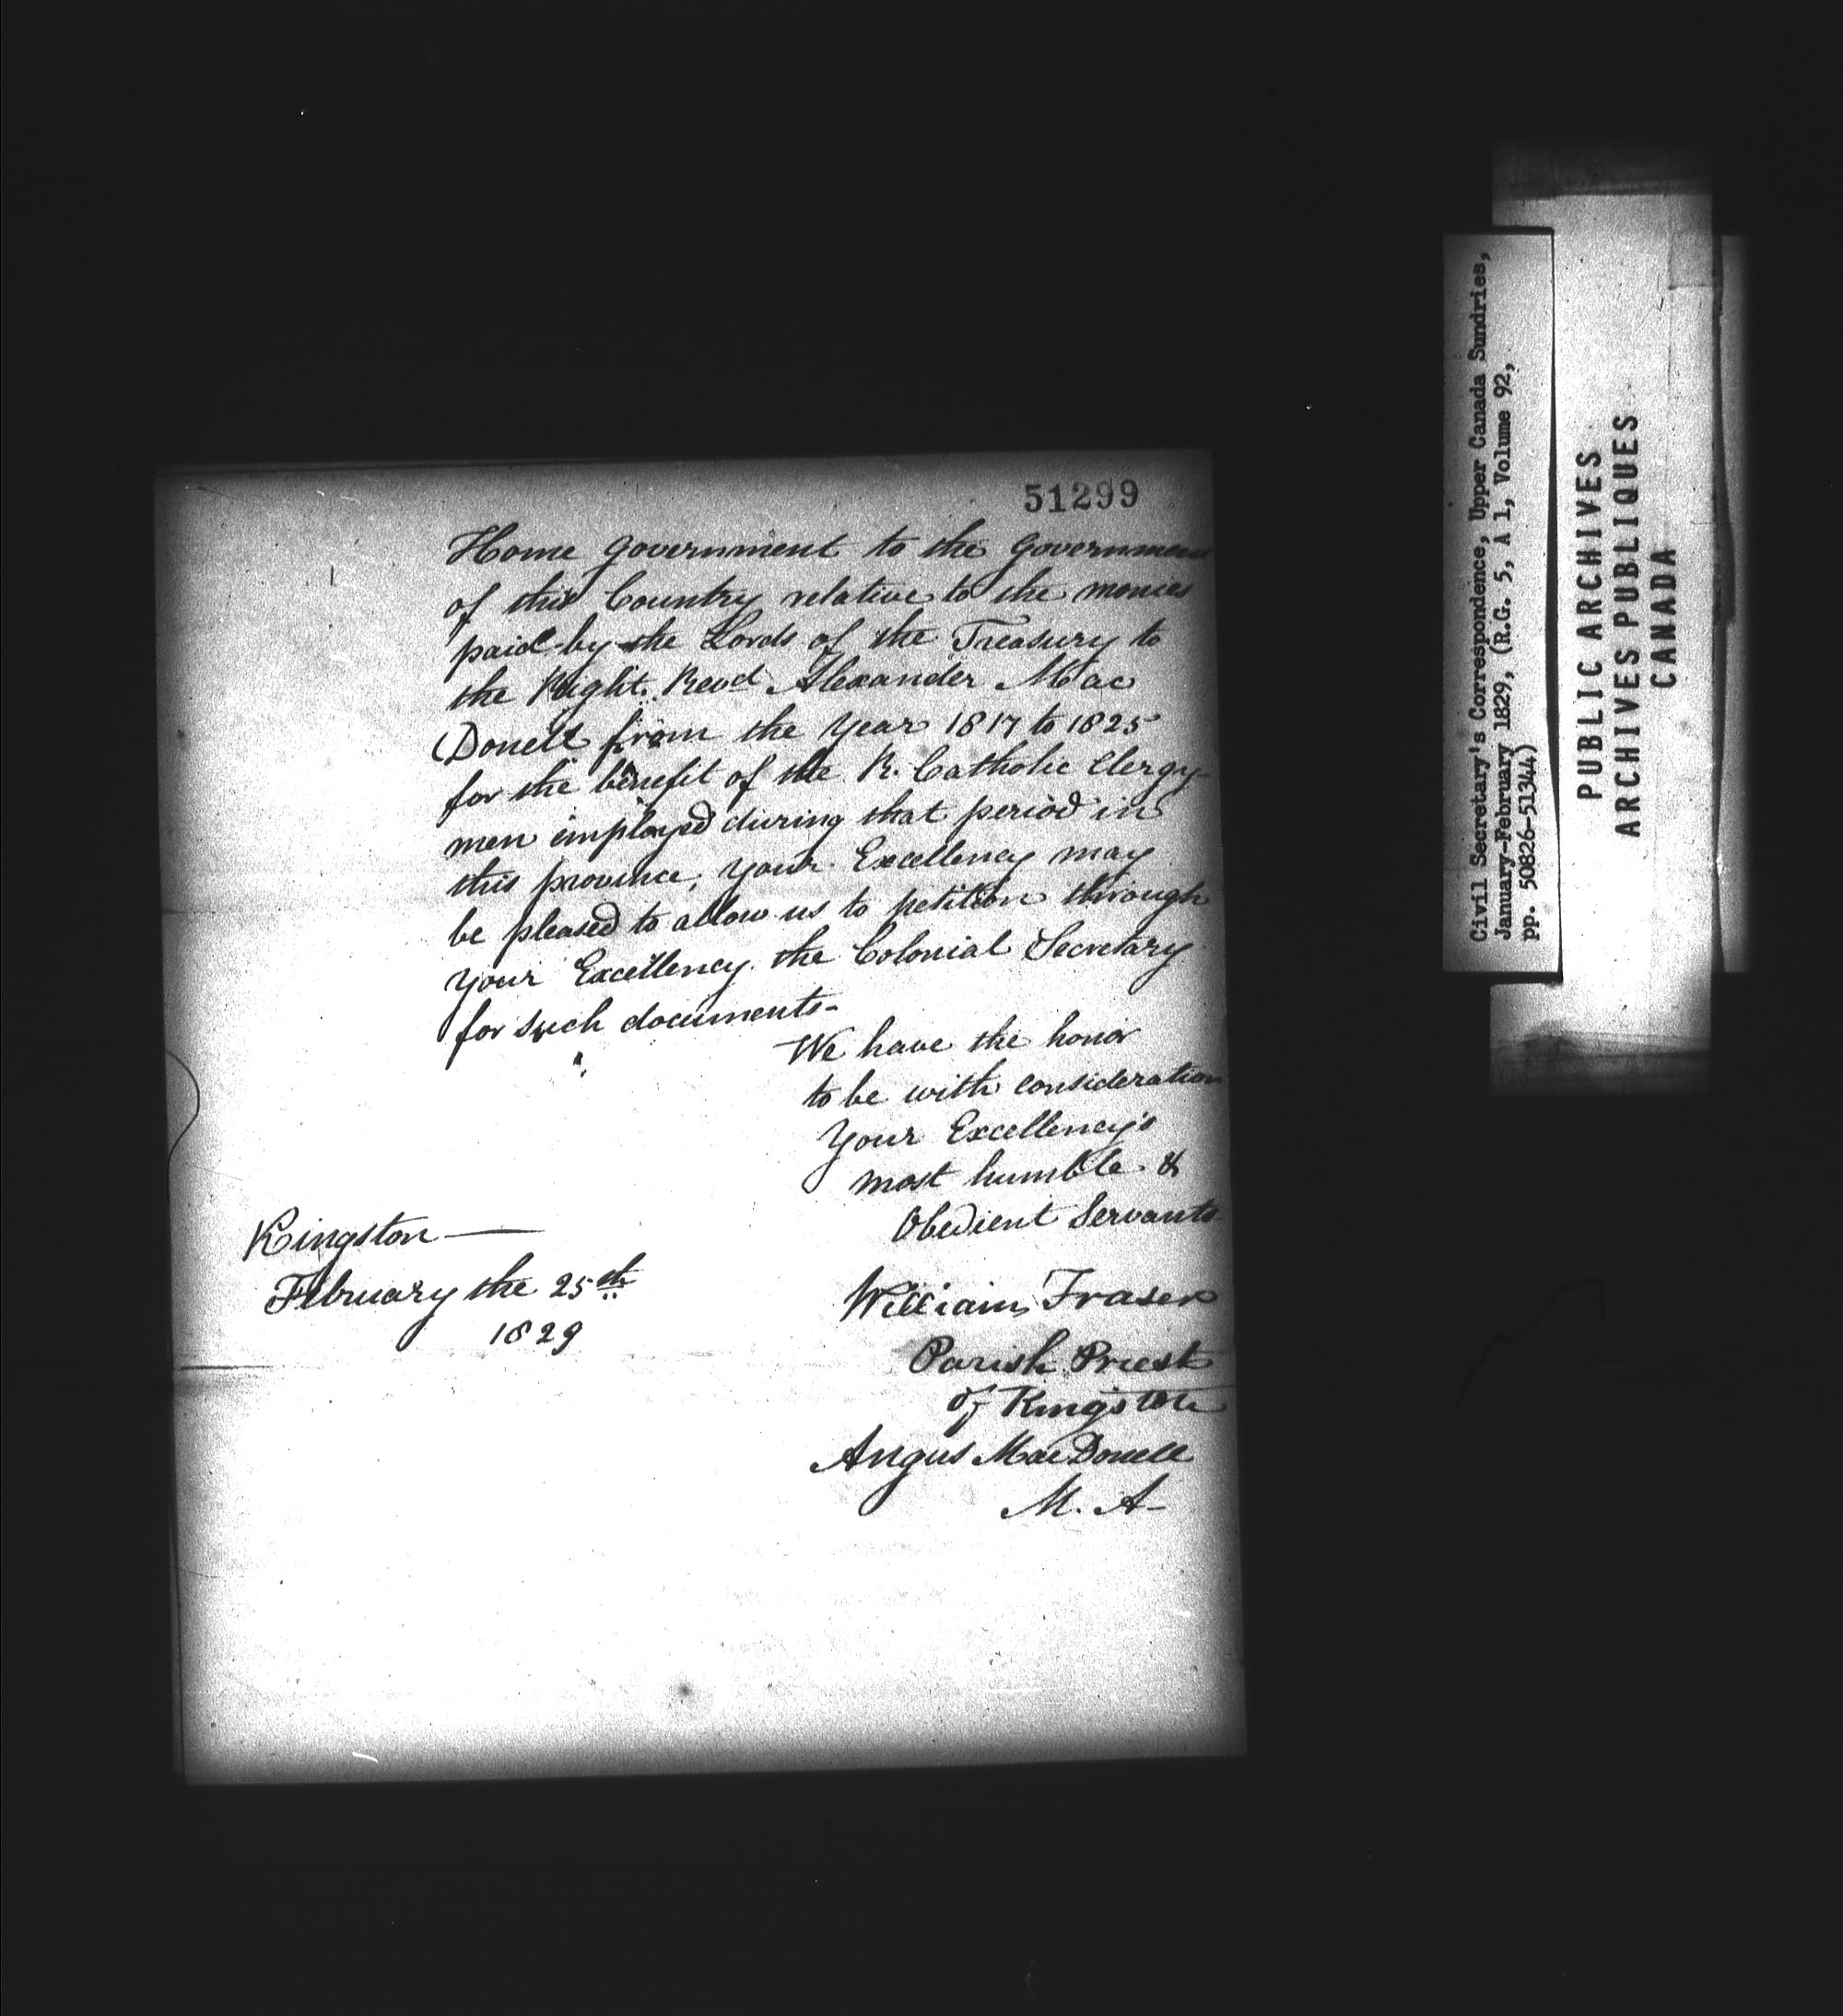 51299
Home Government to the Government
of this Country relative to the monies
paid by the Lords of the Treasury to
the Right Revd Alexander Mac
Donell from the Year 1817 to 1825
for the benefit of the R. Catholic Clergy-
men employed during that period in
this province, your Excellency may
be pleased to allow us to petition through
your Excellency the Colonial Secretary
for such documents-
We have the honor
to be with consideration
Your Excellency's
most humble &
Obedient Servants
Kingston —
February the 25th
1829
William Fraser
Parish Priest
of Kingston
Angus MacDonell
M. A-
Civil Secretary's Correspondence, Upper Canada Sundries,
January-February 1829, (R.G. 5, A 1, Volume 92,
pp. 50826-51344)
PUBLIC ARCHIVES
ARCHIVES PUBLIQUES
CANADA